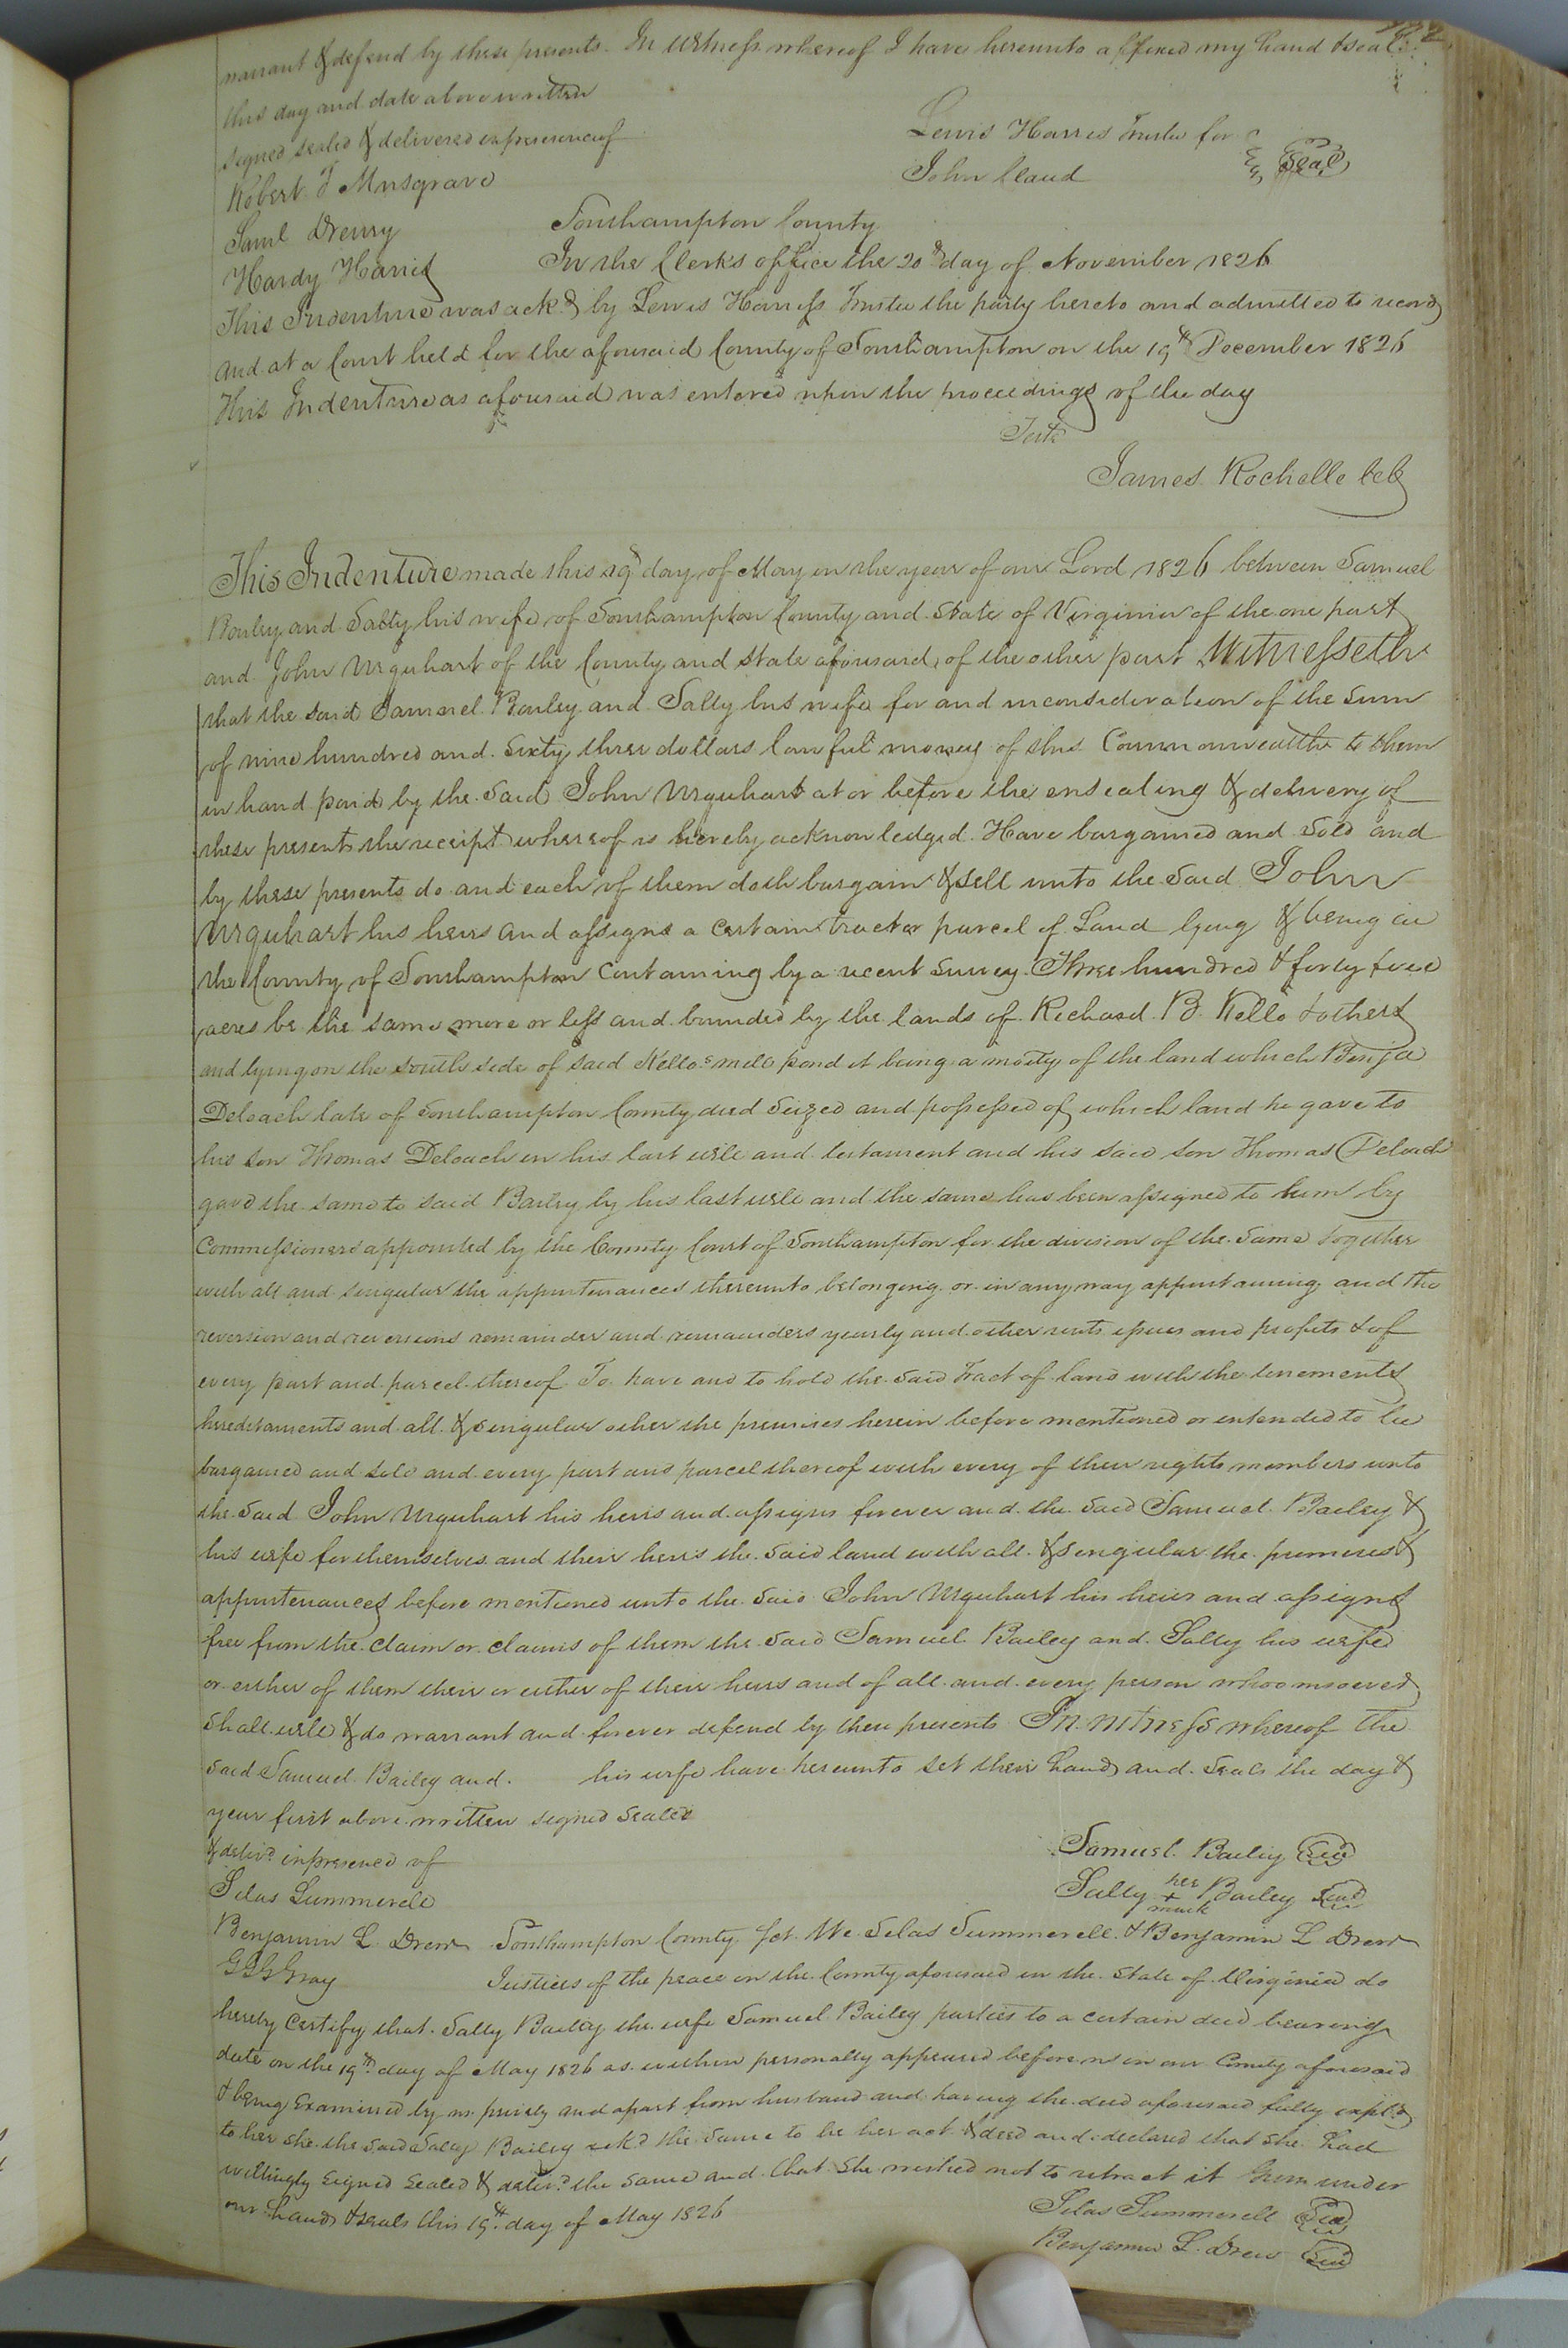 warrant & defend by these presents. In witness whereof I have hereunto affixed my hand & seal
this day and date above written
signed sealed & delivered in presence of
Lewis Harris Trustee for
John Claud Seal
Robert T Musgrave
Saml Drewry
Hardy Harris
Southampton County
In the Clerks office the 20th day of November 1826
This Indenture was ackd by Lewis Harriss Trustee the party hereto and admitted to record
and at a Court held for the aforesaid County of Southampton on the 19th December 1826
This Indenture as aforesaid was entered upon the proceedings of the day
Teste
James Rochelle CC
This Indenture made this 19th day of May in the year of our Lord 1826 between Samuel
Bailey and Sally his wife of Southampton County and State of Virginia of the one part
and John Urquhart of the County and State aforesaid, of the other part Witnesseth
that the said Samuel Bailey and Sally his wife for and in consideration of the sum
of nine hundred and sixty three dollars lawful money of this Commonwealth to them
in hand paid by the said John Urquhart at or before the ensealing & delivery of
these presents the receipt whereof is hereby acknowledged. Have bargained and sold and
by these presents do and each of them doth bargain & sell unto the said John
Urquhart his heirs and assigns a certain tract or parcel of Land lying & being in
the County of Southampton Containing by a recent survey Three hundred & forty five
acres be the same more or less and bounded by the lands of Richard B. Kello & others
and lying on the south side of said Kello's mill pond it being a moity of the land which Benja
Deloach late of Southampton County died Seized and possessed of which land he gave to
his son Thomas Deloach in his last will and testament and his said son Thomas Deloach
gave the same to said Bailey by his last will and the same has been assigned to him by
Commissioners appointed by the County Court of Southampton for the division of the same together
with all and singular the appurtenances thereunto belonging or in any way appurtaining and the
reversion and reversions remainder and remainders yearly and other rents issues and profits & of
every part and parcel thereof To have and to hold the said Tract of land with the tenements
hereditaments and all & singular other the premises herein before mentioned or intended to be
bargained and sold and every part and parcel thereof with every of their rights members unto
the said John Urquhart his heirs and assigns forever and the said Samuel Bailey &
his wife for themselves and their heirs the said land with all & singular the premises &
appurtenances before mentioned unto the said John Urquhart his heirs and assigns
free from the claim or claims of them the said Samuel Bailey and Sally his wife
or either of them their or either of their heirs and of all and every person whoomsoever
Shall will & do warrant and forever defend by these presents In witness whereof the
said Samuel Bailey and his wife have hereunto set their hands and seals the day &
year first above written signed sealed
& delivd in presence of
Samuel Bailey Seal
Silas Summerell
Sally her + mark Bailey Seal
Benjamin L Drew
Southampton County Sct. We Silas Summerell & Benjamin L Drew
Gray
Justices of the peace in the County aforesaid in the State of Virginia do
hereby certify that Sally Bailey the wife Samuel Bailey parties to a certain deed bearing
date on the 19th day of May 1826 as within personally appeared before us in our County aforesaid
& being Examined by us privily and apart from husband and having the deed aforesaid fully expld
to her she the said Sally Bailey ackd the same to be her act & deed and declared that she had
willingly signed sealed & delivd the same and that she wished not to retract it Given under
our hands & seals this 19th day of May 1826
Silas Summerell Seal
Benjamin L. Drew Seal